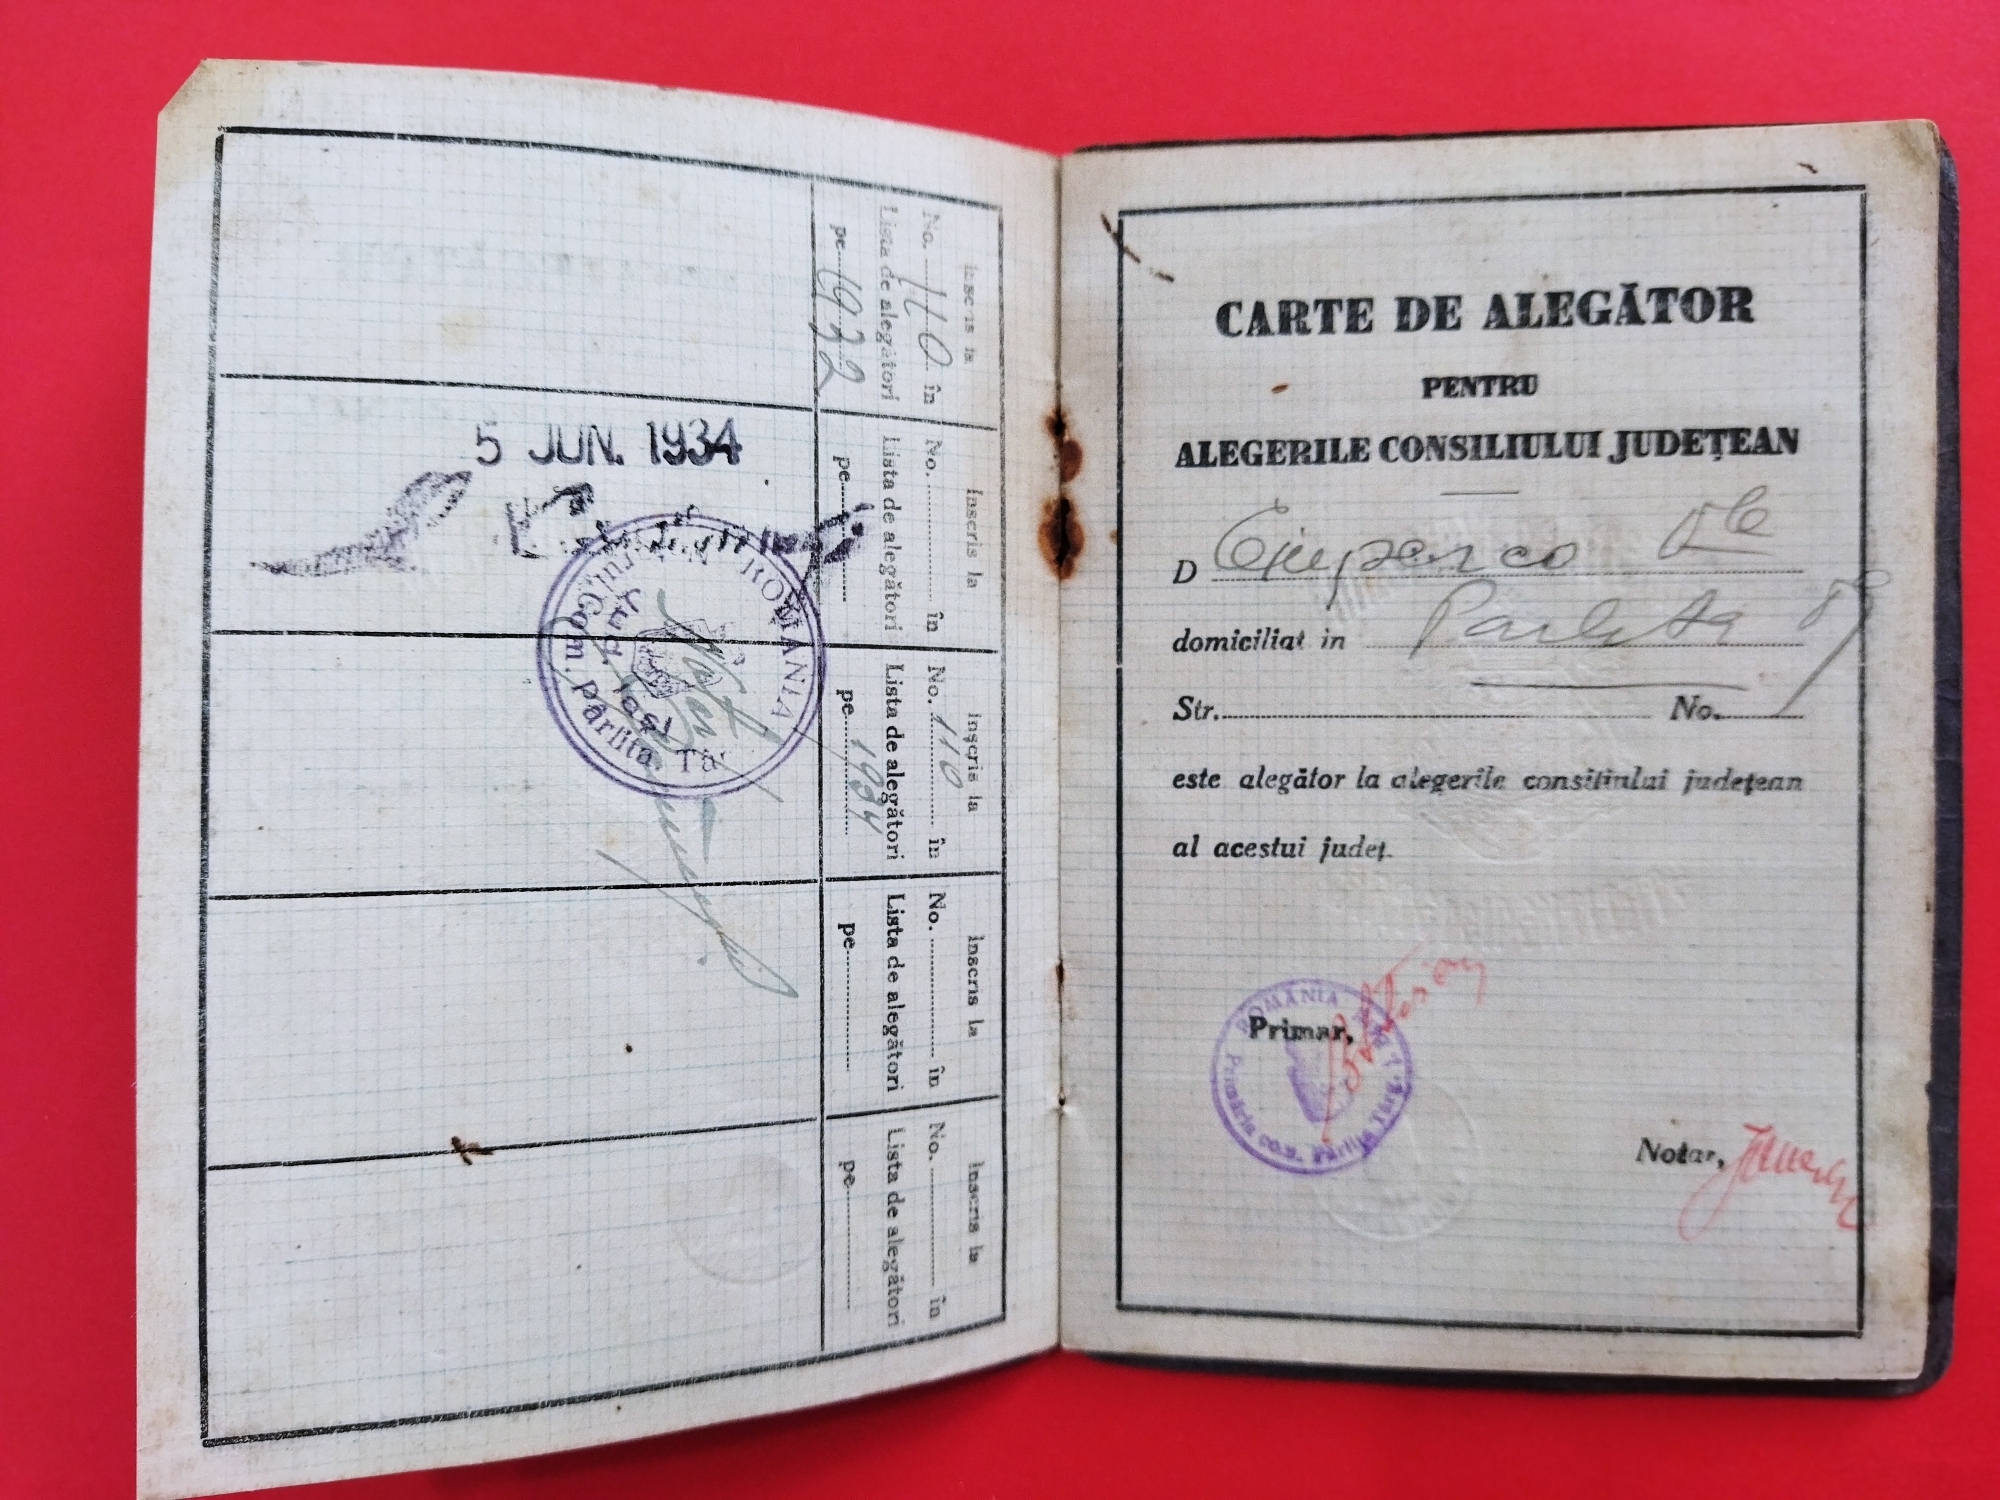 Inscris la
No. 110 în
Lista de alegători
pe 1932
Inscris la
No. în
Lista de alegători
pe
5 JUN. 1934
Inscris la
No. 110 în
Lista de alegători
pe 1934
ROMÂNIA
Jud. Iași
Com. Pârlita
Inscris la
No. în
Lista de alegători
pe
Inscris la
No. în
Lista de alegători
pe
CARTE DE ALEGĂTOR
PENTRU
ALEGERILE CONSILIULUI JUDEȚEAN
D
domiciliat in Parlita
Str. No.
este alegător la alegerile consiliului județean
al acestui județ.
Primar,
ROMÂNIA
Primăria com. Pârlița Târg
Notar,